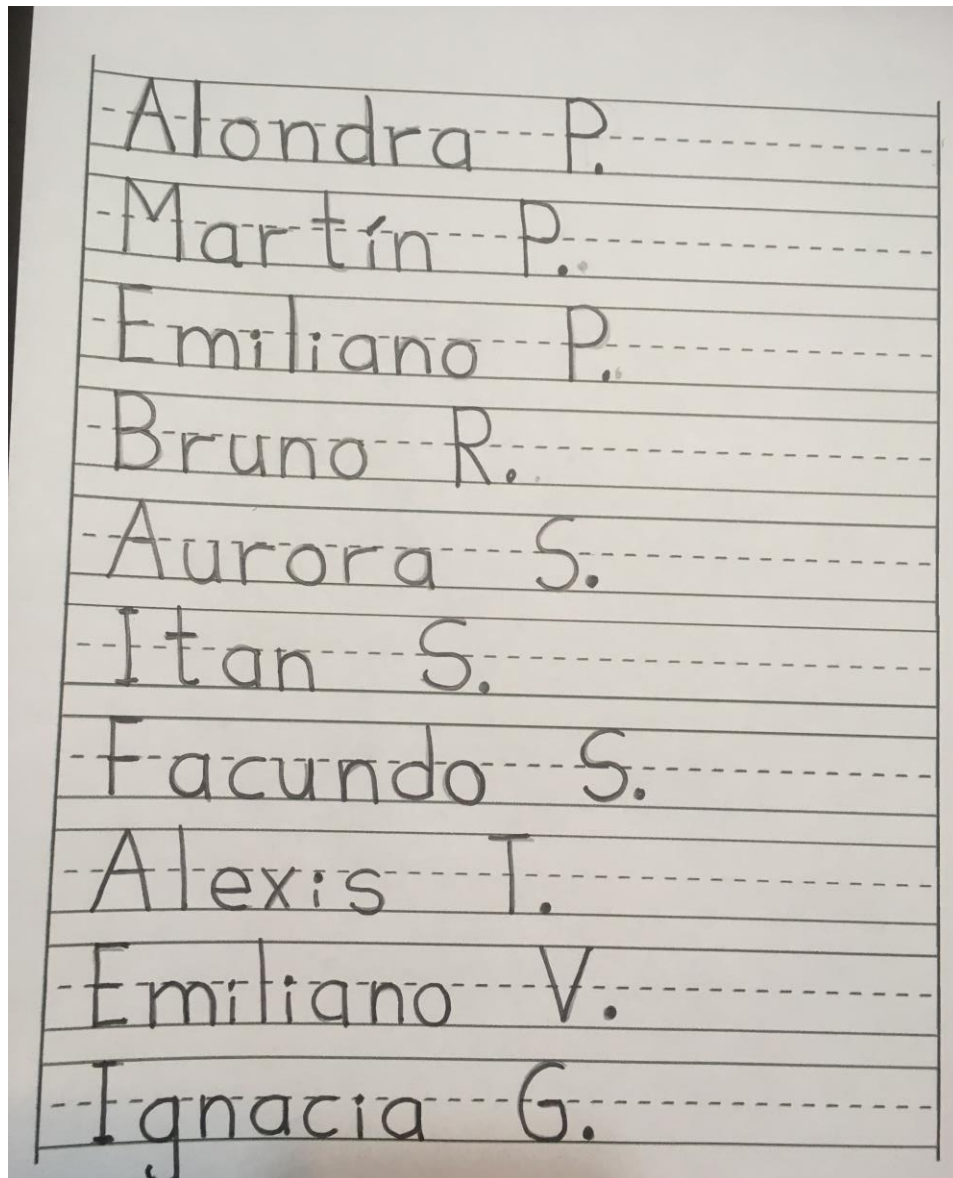 Alondra P.
Martín P.
Emiliano P.
Bruno R.
Aurora S.
Itan S.
Facundo S.
Alexis T.
Emiliano V.
Ignacia G.